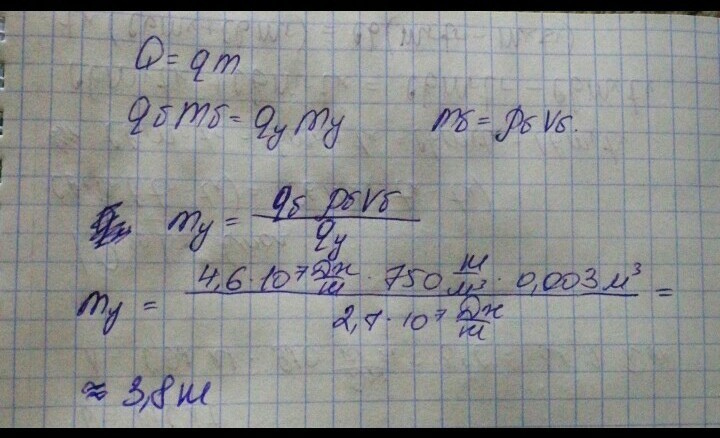 Q = qm
qб mб = qу mу mб = ρб Vб.
mу = qб ρб Vб / qу
mу = 4,6·10⁷ Дж/кг · 750 кг/м³ · 0,003 м³ / 2,7·10⁷ Дж/кг =
≈ 3,8 кг